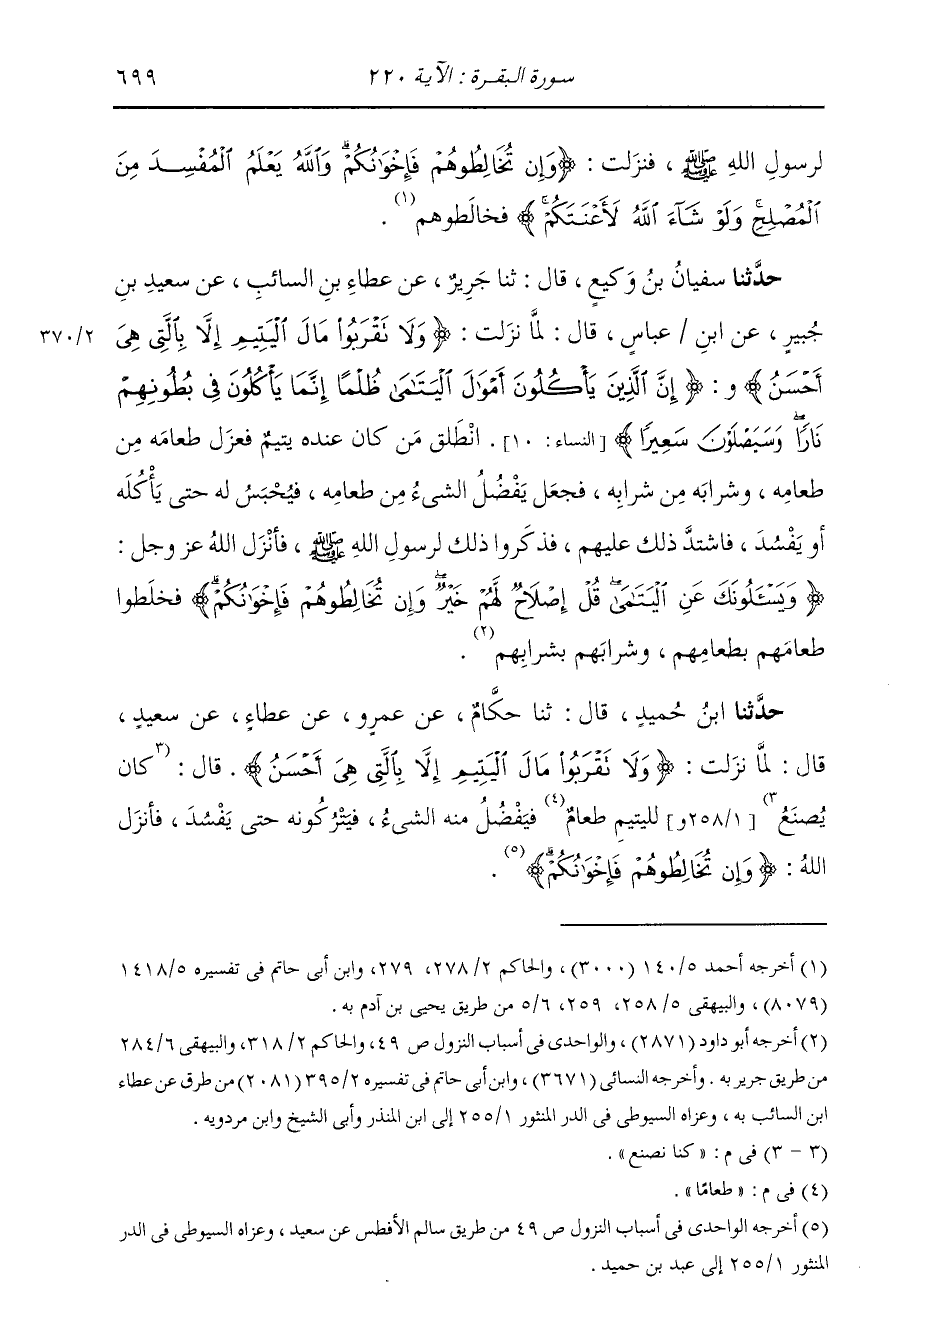 سورة البقرة : الآية ٢٢٠ ٦٩٩
لرسولِ اللهِ ﷺ ، فنزَلت : ﴿وَإِن تُخَالِطُوهُمْ فَإِخْوَانُكُمْ وَاللَّهُ يَعْلَمُ الْمُفْسِدَ مِنَ
الْمُصْلِحِ وَلَوْ شَآءَ اللَّهُ لَأَعْنَتَكُمْ﴾ فخالَطوهم(١) .
حدَّثنا سفيانُ بنُ وَكيعٍ ، قال : ثنا جَريرٌ ، عن عطاءِ بنِ السائبِ ، عن سعيدِ بنِ
جُبيرٍ ، عن ابنِ / عباسٍ ، قال : لمَّا نزَلت : ﴿ وَلَا تَقْرَبُوا مَالَ الْيَتِيمِ إِلَّا بِالَّتِي هِيَ ٣٧٠/٢
أَحْسَنُ ﴾ و : ﴿ إِنَّ الَّذِينَ يَأْكُلُونَ أَمْوَالَ الْيَتَامَىٰ ظُلْمًا إِنَّمَا يَأْكُلُونَ فِي بُطُونِهِمْ
نَارًا وَسَيَصْلَوْنَ سَعِيرًا ﴾ [النساء: ١٠] . انْطَلق مَن كان عنده يتيمٌ فعزَل طعامَه مِن
طعامِه ، وشرابَه مِن شرابِه ، فجعَل يَفْضُلُ الشىءُ مِن طعامِه ، فيُحْبَسُ له حتى يَأْكُلَه
أو يَفْسُدَ ، فاشتدَّ ذلك عليهم ، فذكَروا ذلك لرسولِ اللهِ ﷺ ، فأنْزَل اللهُ عز وجل :
﴿ وَيَسْـَٔلُونَكَ عَنِ الْيَتَامَىٰ قُلْ إِصْلَاحٌ لَّهُمْ خَيْرٌ وَإِن تُخَالِطُوهُمْ فَإِخْوَانُكُمْ ﴾ فخلَطوا
طعامَهم بطعامِهم ، وشرابَهم بشرابِهم(٢) .
حدَّثنا ابنُ حُميدٍ ، قال : ثنا حكَّامٌ ، عن عمرٍو ، عن عطاءٍ ، عن سعيدٍ ،
قال : لمَّا نزَلت : ﴿ وَلَا تَقْرَبُوا مَالَ الْيَتِيمِ إِلَّا بِالَّتِي هِيَ أَحْسَنُ ﴾ . قال : (٣)كان
يُصنَعُ(٣) [٢٥٨/١و] لليتيمِ طعامٌ(٤) فيَفْضُلُ منه الشىءُ ، فيَتْرُكونه حتى يَفْسُدَ ، فأنزَل
اللهُ : ﴿ وَإِن تُخَالِطُوهُمْ فَإِخْوَانُكُمْ ﴾(٥) .
(١) أخرجه أحمد ١٤٠/٥ (٣٠٠٠) ، والحاكم ٢٧٨/٢، ٢٧٩، وابن أبى حاتم فى تفسيره ١٤١٨/٥
(٨٠٧٩) ، والبيهقى ٢٥٨/٥، ٢٥٩، ٥/٦ من طريق يحيى بن آدم به .
(٢) أخرجه أبو داود (٢٨٧١) ، والواحدى فى أسباب النزول ص ٤٩، والحاكم ٣١٨/٢، والبيهقى ٢٨٤/٦
من طريق جرير به . وأخرجه النسائى (٣٦٧١) ، وابن أبى حاتم فى تفسيره ٣٩٥/٢ (٢٠٨١) من طرق عن عطاء
ابن السائب به ، وعزاه السيوطى فى الدر المنثور ٢٥٥/١ إلى ابن المنذر وأبى الشيخ وابن مردويه .
(٣ - ٣) فى م : « كنا نصنع » .
(٤) فى م : « طعامًا » .
(٥) أخرجه الواحدى فى أسباب النزول ص ٤٩ من طريق سالم الأفطس عن سعيد ، وعزاه السيوطى فى الدر
المنثور ٢٥٥/١ إلى عبد بن حميد .